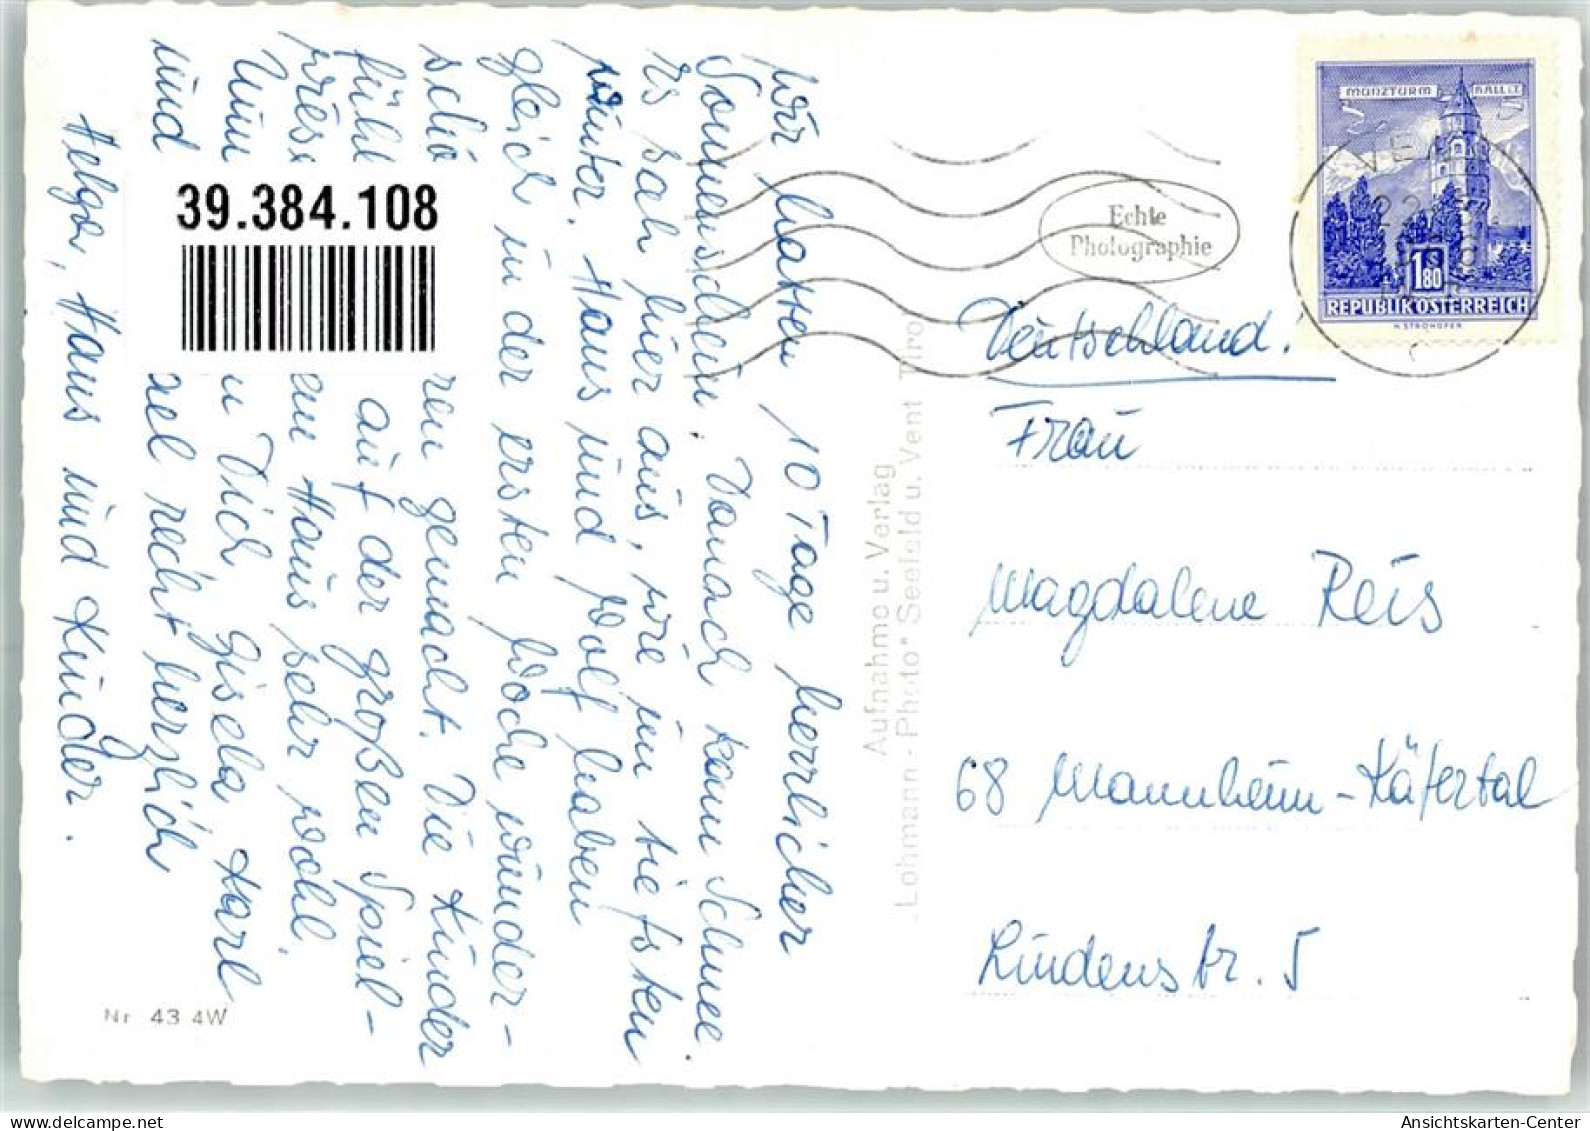 wir hatten 10 Tage herrlicher
Sonnenschein. Danach kam Schnee.
es sah hier aus, wie im tiefsten
Winter. Hans und Wolf haben
gleich in der ersten Woche wunder-
schö ren gemacht. Die Kinder
fühl auf der großen Spiel-
wies. em Haus sehr wohl.
Nun n Dich, Gisela Karl
und xel recht herzlich
Helga, Hans und Kinder.
39.384.108
Echte
Photographie
MÜNZTURM HALL i.T.
1.80
REPUBLIK ÖSTERREICH
H. STROHOFER
VENT
Aufnahme u. Verlag
"Lohmann-Photo" Seefeld u. Vent Tirol
Deutschland.
Frau
Magdalene Reis
68 Mannheim-Käfertal
Lindenstr. 5
Nr. 43 4W
Ansichtskarten-Center